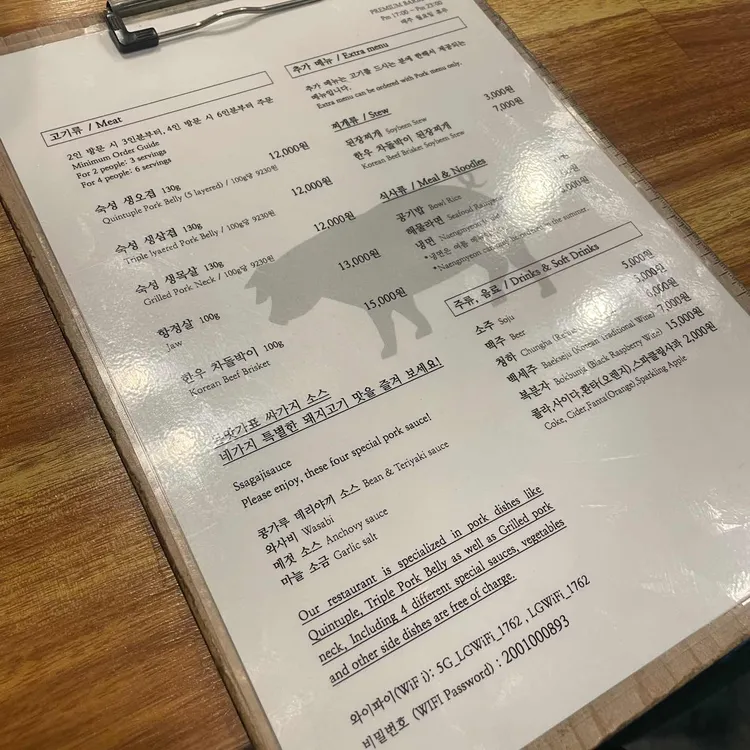 PREMIUM
Pm 17:00 ~ Pm 23:00
매주 월요일 휴무
고기류 / Meat
2인 방문 시 3인분부터, 4인 방문 시 6인분부터 주문
Minimum Order Guide
For 2 people: 3 servings
For 4 people: 6 servings
숙성 생오겹 130g 12,000원
Quintuple Pork Belly (5 layered) / 100g당 9230원
숙성 생삼겹 130g 12,000원
Triple lyaered Pork Belly / 100g당 9230원
숙성 생목살 130g 12,000원
Grilled Pork Neck / 100g당 9230원
항정살 100g 13,000원
Jaw
한우 차돌박이 100g 15,000원
Korean Beef Brisket
싸가지 소스
네가지 특별한 돼지고기 맛을 즐겨 보세요!
Ssagajisauce
Please enjoy, these four special pork sauce!
콩가루 데리야끼 소스 Bean & Teriyaki sauce
와사비 Wasabi
메젓 소스 Anchovy sauce
마늘 소금 Garlic salt
추가 메뉴 / Extra menu
추가 메뉴는 고기를 드시는 분에 한해서 제공되는
메뉴입니다.
Extra menu can be ordered with Pork menu only.
찌개류 / Stew
된장찌개 Soybean Stew 3,000원
한우 차돌박이 된장찌개 7,000원
Korean Beef Brisket Soybean Stew
식사류 / Meal & Noodles
공기밥 Bowl Rice
해물라면 Seafood
냉면
*냉면은 여름
*Naengmyeon can the summer.
주류, 음료 / Drinks & Soft Drinks
소주 Soju 5,000원
맥주 Beer
청하 Chungha
백세주 Baekseju (Korean Traditional Wine) 7,000원
복분자 Bokbunja (Black Raspberry Wine) 15,000원
콜라,사이다,환타(오렌지),스파클링사과 2,000원
Coke, Cider,Fanta(Orange),Sparkling Apple
Our restaurant is specialized in pork dishes like
Quintuple, Triple Pork Belly as well as Grilled pork
neck, Including 4 different special sauces, vegetables
and other side dishes are free of charge.
와이파이(WiF i): 5G_LGWiFi_1762 , LGWiFi_1762
비밀번호 (WIFI Password) : 2001000893